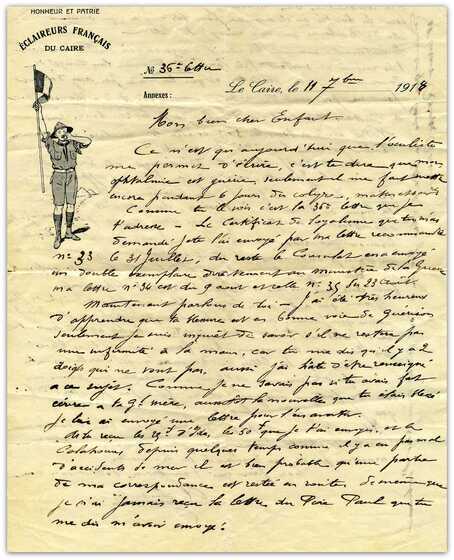 HONNEUR ET PATRIE
ÉCLAIREURS FRANÇAIS
DU CAIRE
No 36e lettre
Annexes:
Le Caire, le 11 7bre 1918
Mon bien cher Enfant
Ce n'est qu'aujourd'hui que l'oculiste
me permet d'écrire, c'est te dire que mon
ophtalmie est guérie, seulement il me faut mettre
encore pendant 6 jours du collyre, matin et soir
Comme tu le vois c'est la 36e lettre que je
t'adresse - Le Certificat de loyalisme que tu m'as
demandé je te l'ai envoyé par ma lettre recommandée
no 33 le 31 Juillet, du reste le Consulat en a envoyé
un double exemplaire directement au ministre de la Guerre
ma lettre no 34 est du 9 aout et celle no 35 du 23 aout.
Maintenant parlons de toi - J'ai été très heureux
d'apprendre que ta blessure est en bonne voie de guérison
seulement je suis inquiet de savoir s'il ne restera pas
une infirmité à la main, car tu me dis qu'il y a 2
doigts qui ne vont pas, aussi j'ai hâte d'être renseigné
à ce sujet. Comme je ne savais pas si tu avais fait
écrire à ta Gd mère, aussitôt la nouvelle que tu étais blessé
je lui ai envoyé une lettre pour l'en
As-tu reçu les que je t'ai envoyé, et la
depuis quelques temps comme il y a eu pas mal
d'accidents de mer il est bien probable qu'une partie
de ma correspondance est restée en route, de même que
je n'ai jamais reçu la lettre du Père Paul que tu
me dis m'avoir envoyé!